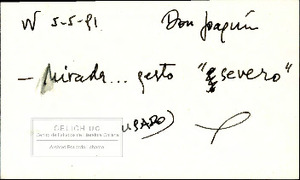 W 5-5-91 Don Joaquín
— Mirada... gesto "severo"
USADO)
CELICH UC
Centro de Estudios de Literatura Chilena